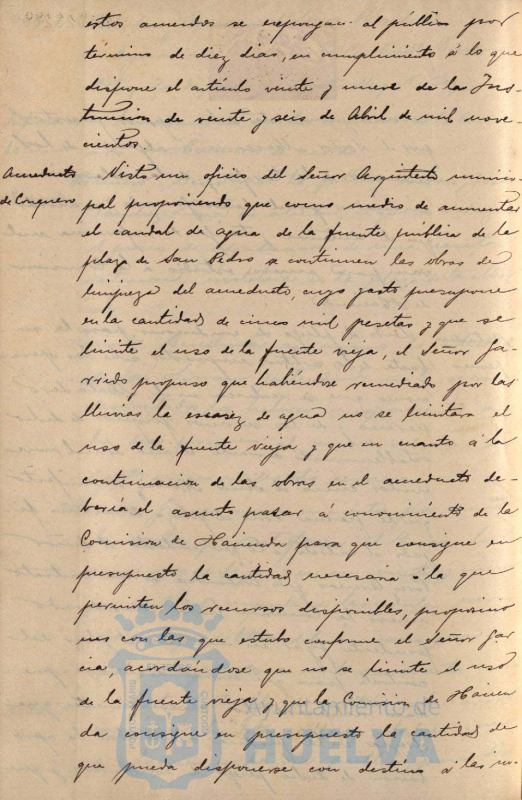 estos acuerdos se expongan al público por
término de diez dias, en cumplimiento á lo que
dispone el artículo veinte y nueve de la Ins-
truccion de veinte y seis de Abril de mil nove-
cientos.
Acueducto
de Conquero
Visto un oficio del Señor Arquitecto munici-
pal proponiendo que como medio de aumentar
el caudal de agua de la fuente pública de la
plaza de San Pedro se continuen las obras de
limpieza del acueducto, cuyo gasto presupone
en la cantidad de cinco mil pesetas y que se
limite el uso de la fuente vieja, el Señor Ga-
rrido propuso que habiéndose remediado por las
lluvias la escasez de agua no se limitara el
uso de la fuente vieja y que en cuanto á la
continuacion de las obras en el acueducto de-
bería el asunto pasar á conocimiento de la
Comision de Hacienda para que consigne en
presupuesto la cantidad necesaria ó la que
permiten los recursos disponibles, proposicio
nes con las que estubo conforme el Señor Gar
cia, acordándose que no se limite el uso
de la fuente vieja y que la Comision de Hacien
da consigne en presupuesto la cantidad de
que pueda disponerse con destino á las in-
Ayuntamiento de
HUELVA